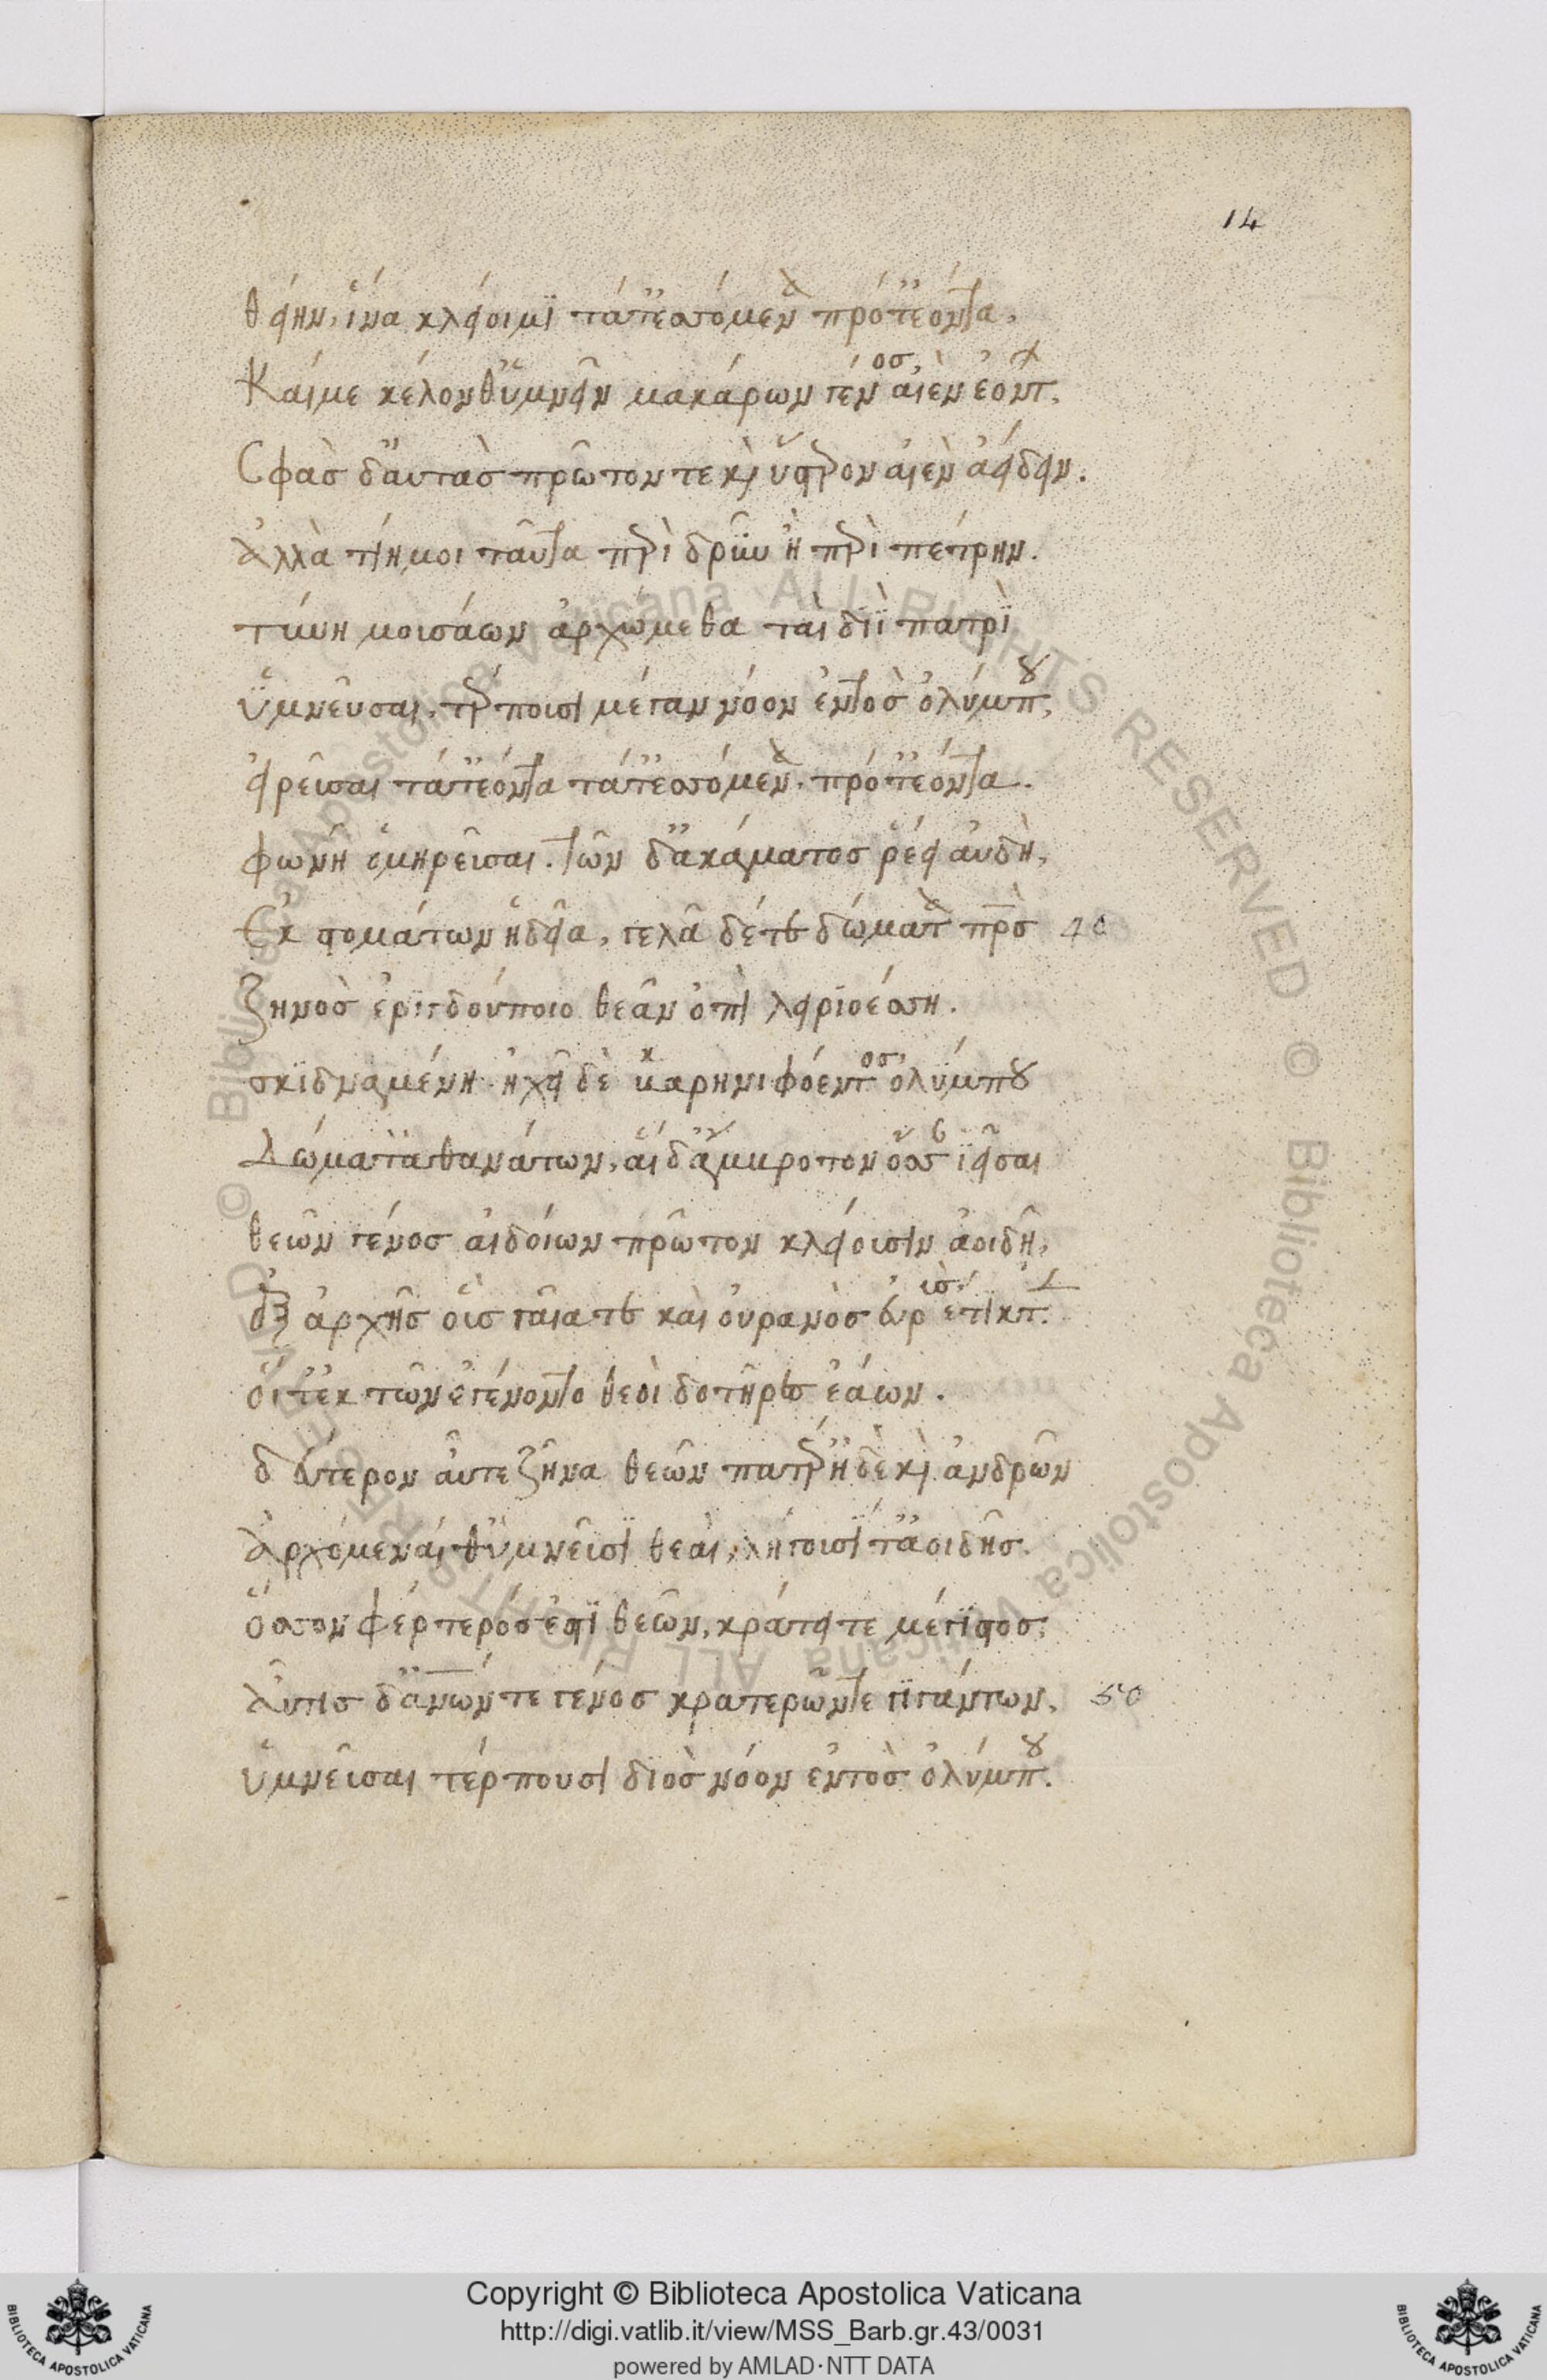 14
θείην, ἵνα κλείοιμϊ τά τ' ἐσσόμενα πρό τ' ἐόντα,
Καί με κέλονθ' ὑμνεῖν μακάρων γένος αἰὲν ἐόντων,
Σφὰς δ' αὐτὰς πρῶτον τε καὶ ὕστερον αἰὲν ἀείδειν.
Ἀλλὰ τίη μοι ταῦτα περὶ δρῦν ἢ περὶ πέτρην.
τύνη μοισάων ἀρχώμεθα ταὶ διῒ πατρὶ
ὑμνεῦσαι, τέρποισι μέγαν νόον ἐντὸς ὀλύμπου,
εἰρεῖσαι τά τ' ἐόντα τά τ' ἐσσόμενα, πρό τ' ἐόντα.
φωνῇ ὁμηρεῖσαι. τῶν δ' ἀκάματος ῥέει αὐδὴ,
Ἐκ στομάτων ἡδεῖα, γελᾶ δέ τε δώματα πατρὸς 40
Ζηνὸς ἐριγδούποιο θεᾶν ὀπὶ λειριοέσση.
σκιδναμένη. ἠχεῖ δὲ κάρη νιφόεντος ὀλύμπου
Δώματ' ἀθανάτων, αἱ δ' ἄμβροτον ὄσσαν ἱεῖσαι
θεῶν γένος αἰδοίων πρῶτον κλείοισιν ἀοιδῇ,
ἐξ ἀρχῆς οἷς γαῖά τε καὶ οὐρανὸς εὐρὺς ἔτικτεν.
οἵ τ' ἐκ τῶν ἐγένοντο θεοὶ δοτῆρες ἐάων.
δεύτερον αὖτε ζῆνα θεῶν πατέρ' ἠδὲ καὶ ἀνδρῶν
Ἀρχόμεναί θ' ὑμνεῖσϊ θεαὶ, λήγοισϊ τ' ἀοιδῆς.
ὅσσον φέρτερός ἐστϊ θεῶν, κράτει τε μέγϊστος,
Αὖτις δ' ἀνων τε γένος κρατερῶν τε γϊγάντων, 50
ὑμνεῖσαι τέρπουσι διὸς νόον ἐντὸς ὀλύμπου.
Copyright © Biblioteca Apostolica Vaticana
http://digi.vatlib.it/view/MSS_Barb.gr.43/0031
powered by AMLAD·NTT DATA